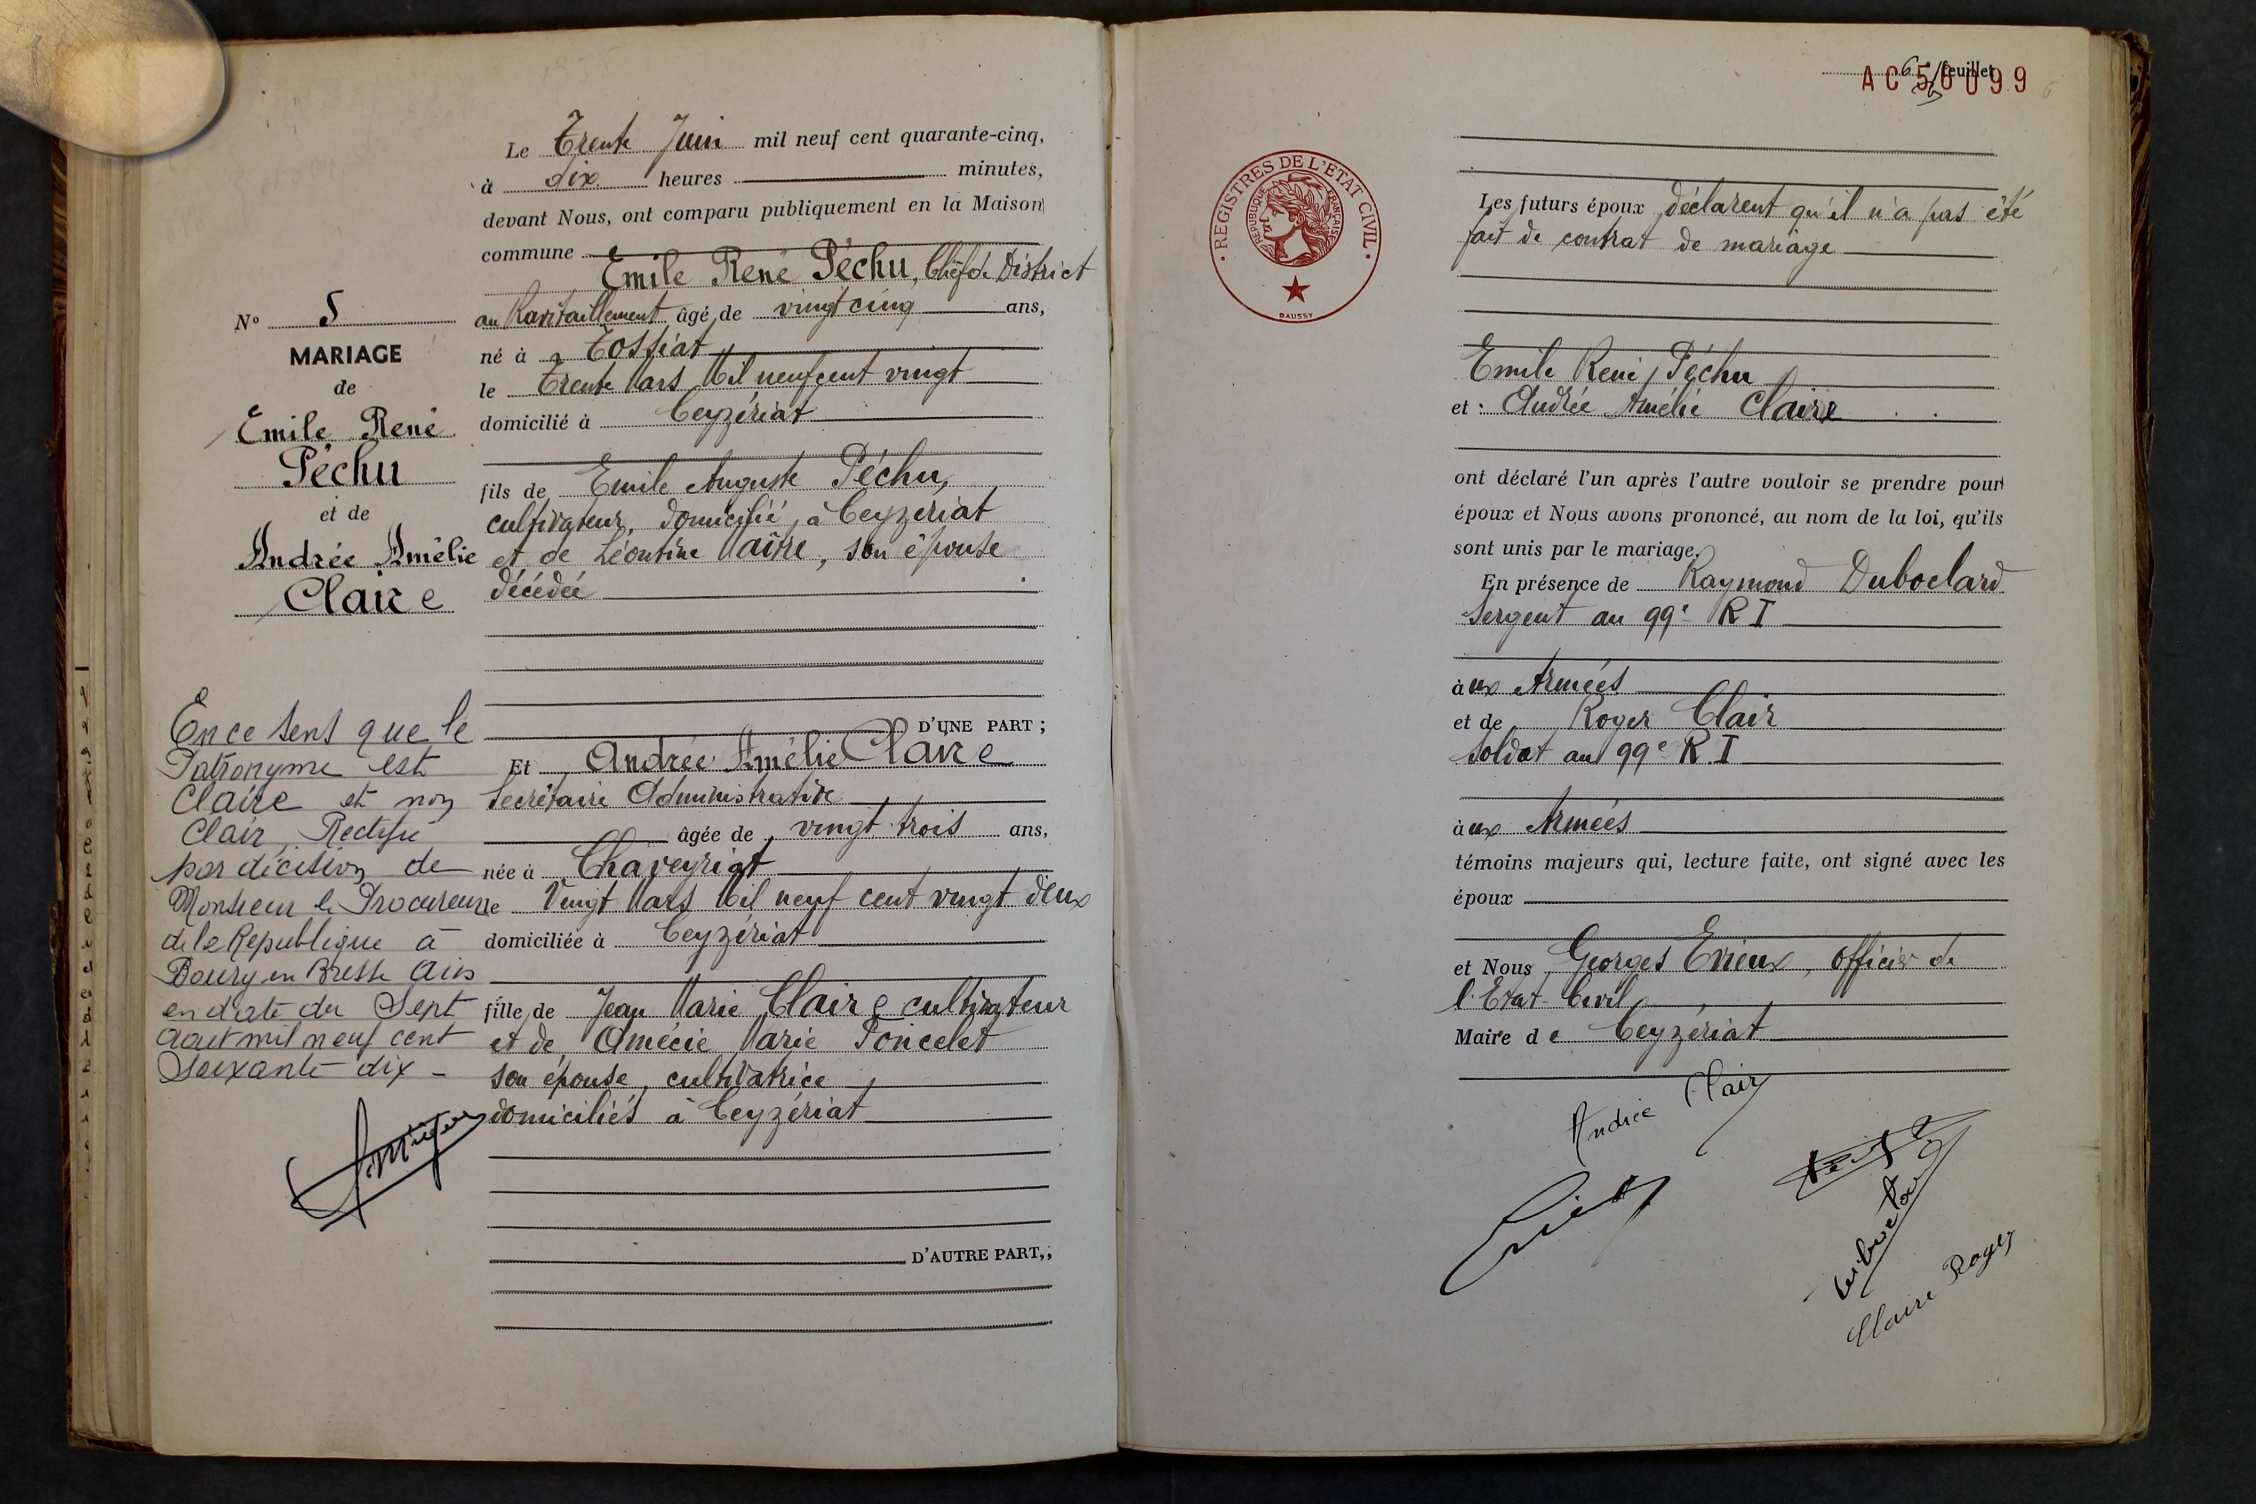 Le Trente Juin mil neuf cent quarante-cinq,
à dix heures minutes,
devant Nous, ont comparu publiquement en la Maison
commune
Emile René Péchu, Chef de District
au Ravitaillement âgé de vingt cinq ans,
né à Tossiat
le Trente Mars Mil neuf cent vingt
domicilié à Ceyzériat
fils de Emile Auguste Péchu,
cultivateur, domicilié à Ceyzeriat
et de Léontine Maître, son épouse
décédée
D'UNE PART ;
Et Andrée Amélie Claire
Secrétaire Administrative
âgée de vingt trois ans,
née à Chaveyriat
le Vingt Mars Mil neuf cent vingt deux
domiciliée à Ceyzériat
fille de Jean Marie Claire cultivateur
et de Amécie Marie Poncelet
son épouse, cultivatrice
domiciliés à Ceyzériat
D'AUTRE PART,,
N° 5
MARIAGE
de
Emile René
Péchu
et de
Andrée Amélie
Claire
En ce sens que le
Patronyme est
Claire et non
Clair, Rectifié
par décision de
Monsieur le Procureur
de la République à
Bourg en Bresse Ain
en date du Sept
Aout mil neuf cent
Soixante-dix -
6 feuillet
AC 56099
REGISTRES DE L'ETAT CIVIL
REPUBLIQUE FRANÇAISE
DAUSSY
Les futurs époux déclarent qu'il n'a pas été
fait de contrat de mariage
Emile René Péchu
et : Andrée Amélie Claire
ont déclaré l'un après l'autre vouloir se prendre pour
époux et Nous avons prononcé, au nom de la loi, qu'ils
sont unis par le mariage.
En présence de Raymond Duboclard
Sergent au 99e R I
à ux Armées
et de Roger Clair
soldat au 99e R.I
à ux Armées
témoins majeurs qui, lecture faite, ont signé avec les
époux
et Nous Georges Evieux, officier de
l'Etat-Civil
Maire d e Ceyzériat
Andrée Clair
Claire Roger